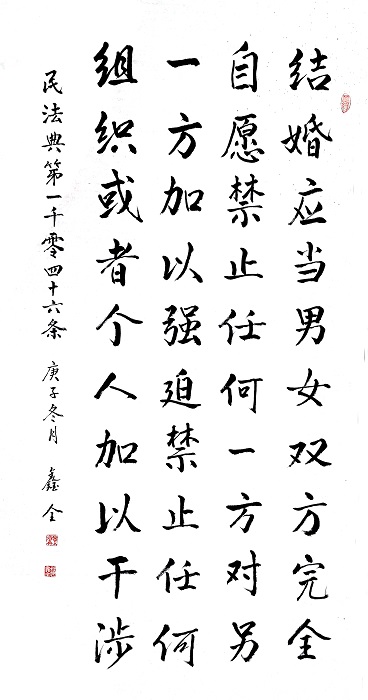 结婚应当男女双方完全
自愿禁止任何一方对另
一方加以强迫禁止任何
组织或者个人加以干涉
民法典第一千零四十六条 庚子冬月 鑫全